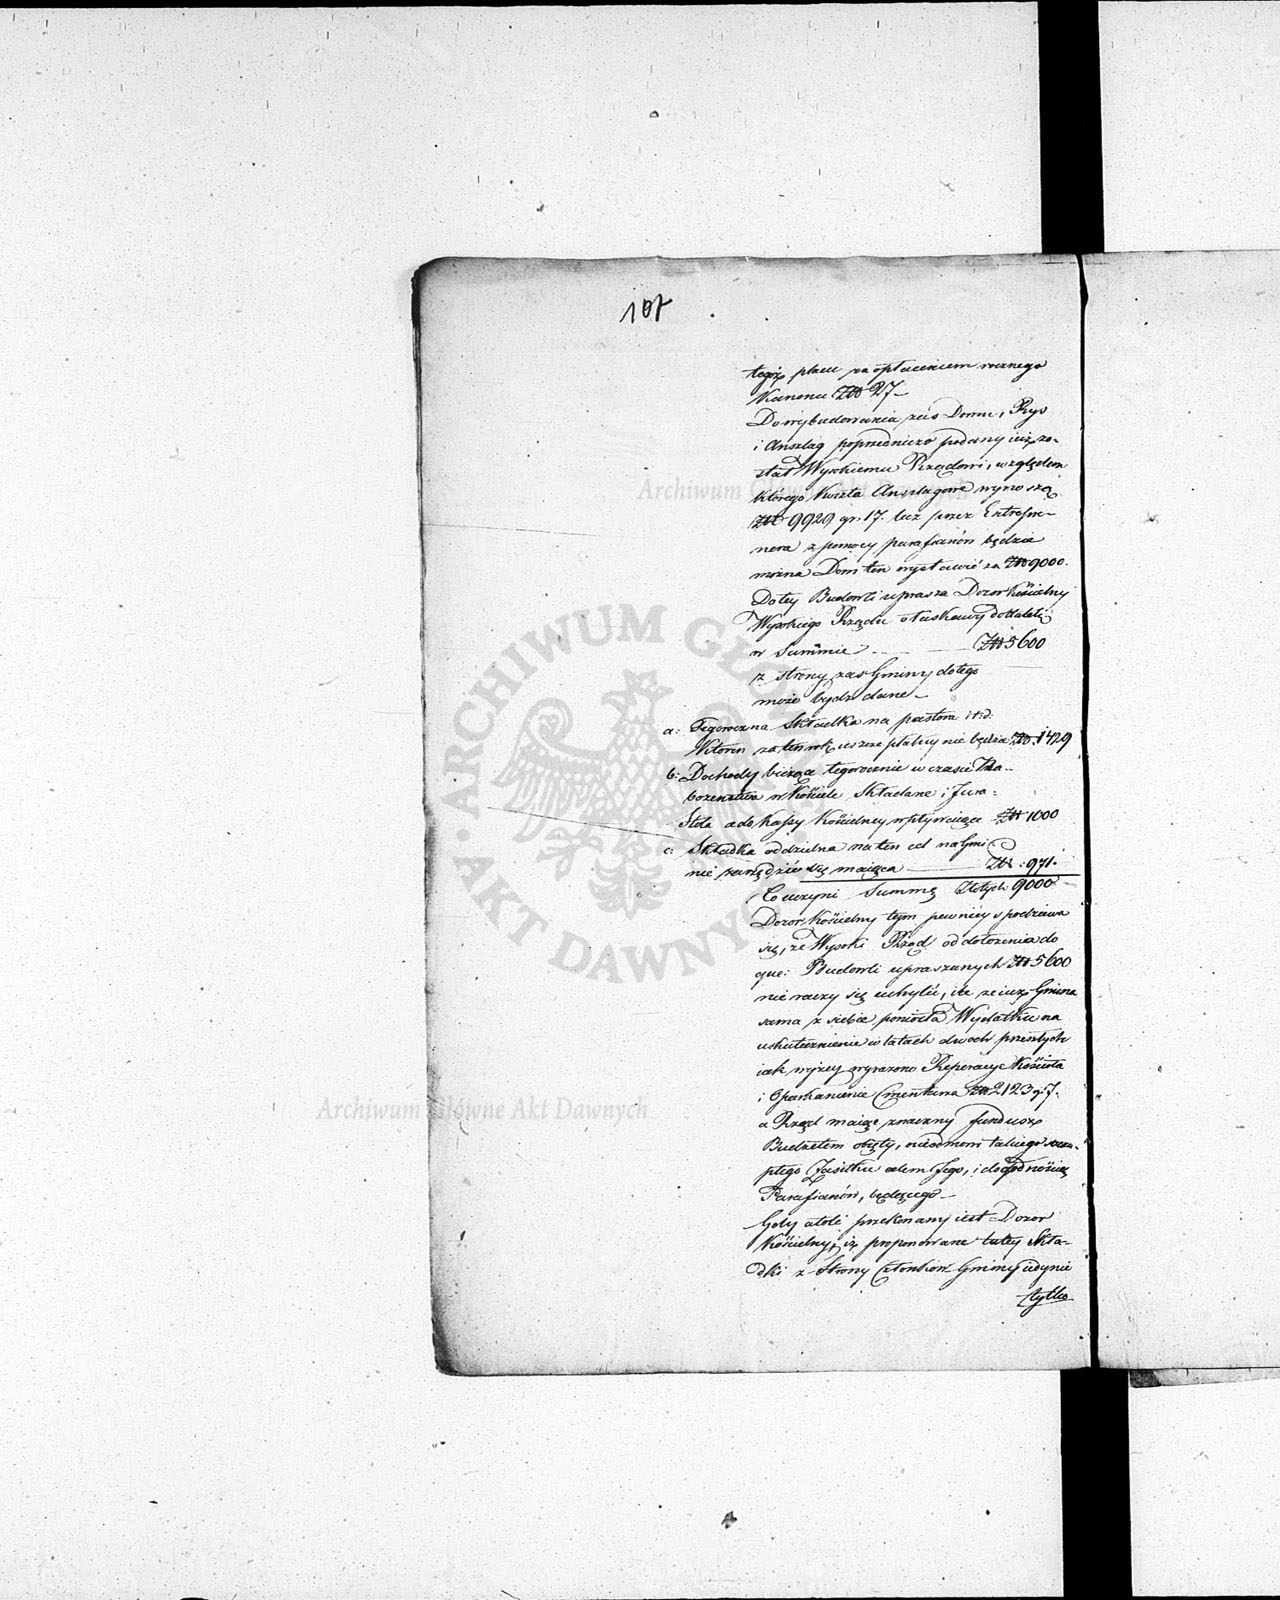 107
tegoż placu za opłaceniem rocznego
Kanonu Złł 27 –
Do wybudowania zaś Domu, Rys
i Anszlag poprzedniczo podany iuż zo-
stał Wysokiemu Rządowi, względem
którego Koszta Anszlagowe wynoszą
Złł 9929 gr. 17. lecz przez Entrepre-
nera z pomocy parafianów będzie
można Dom ten wystawić za Złł 9000.
Do tey Budowli uprasza Dozor Kościelny
Wysokiego Rządu o łaskawy dodatek
w Summie – – – Złł 5600
z strony zas Gminy do tego
może bydź dane –
a: Tegoroczna Składka na pastora i t: d:
Ktoren za ten rok ieszcze płatny nie będzie Zł. 1429
b: Dochody bieżące tegorocznie w czasie Na-
bozenstwa w Kościele Składane i Jura-
Stola a do Kassy Kościelney wpływaiące Złł 1000
c: Składka oddzielna na ten cel na Gmi-
nie rządzić się maiąca – Złł: 971.
Co uczyni Summę Złotych 9000 –
Dozor Kościelny tym pewniéy spodziewa
się, że Wysoki Rząd od dołożenia do
que: Budowli upraszanych Złł 5600
nie raczy się uchylić, ile ze iuż Gmina
sama z siebie poniosła Wydatku na
uskutecznienie w latach dwoch przeszłych
iak wyżey wyrażono Reperacye Kościoła
i Oparkanienie Cmentarza Złł 2123 g: 7.
a Rząd maiąc znaczny fundusz
Budżetem obięty, nieodmowi takiego szczu-
płego Zasiłku celem Jego, i dogodnością
Parafianów, będącego –
Gdy atoli przekonany iest Dozor
Kościelny, iż proponowane tutey Skła-
dki z Strony Członków Gminy iedynie
tylko
ARCHIWUM GŁÓWNE AKT DAWNYCH
Archiwum Główne Akt Dawnych
Archiwum Główne Akt Dawnych